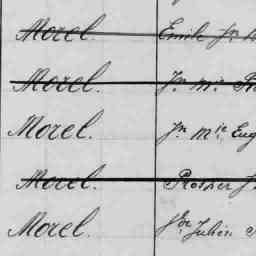 Morel. Emile Jn
Morel. Jn Mie
Morel. Jn Mie Eug
Morel. Prosper J
Morel. Jules Julien